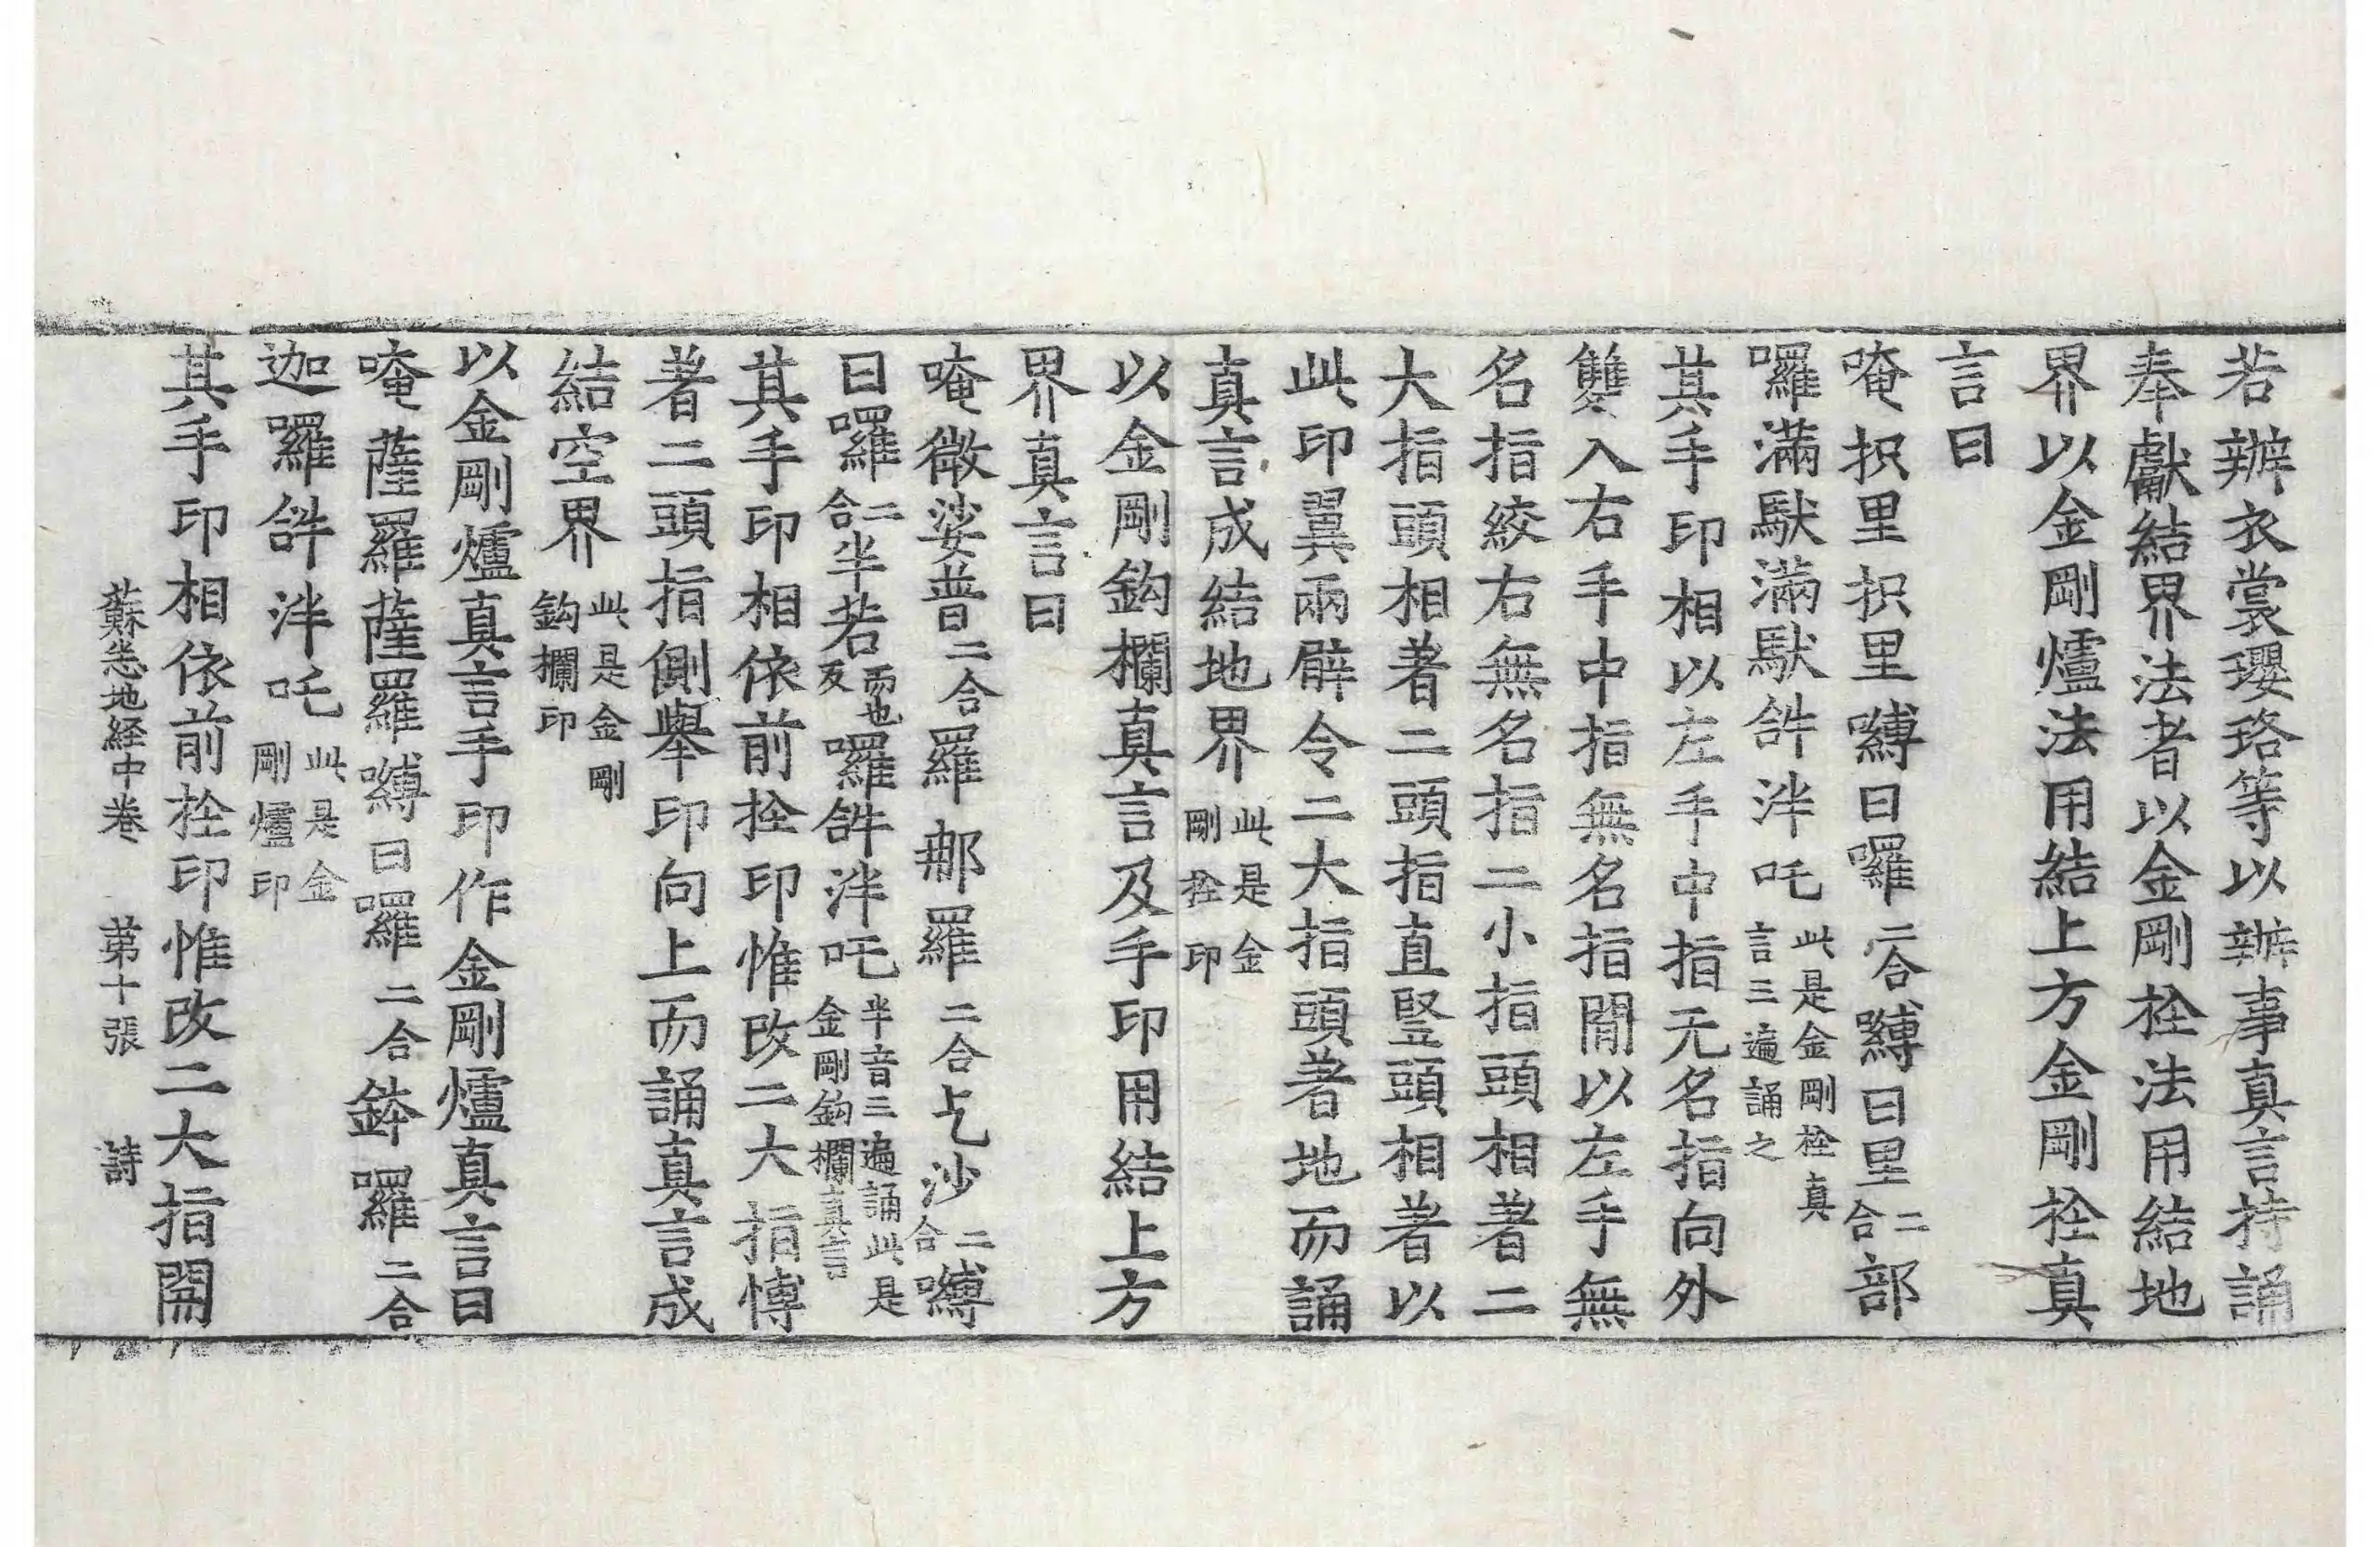 若辦衣裳瓔珞等以辦事真言持誦
奉獻結界法者以金剛栓法用結地
界以金剛爐法用結上方金剛栓真
言曰
唵抧里抧里嚩曰囉二合嚩曰里二合部
囉滿馱滿馱𤙖泮吒此是金剛栓真言三遍誦之
其手印相以左手中指无名指向外
雙入右手中指無名指閒以左手無
名指絞右無名指二小指頭相著二
大指頭相著二頭指直豎頭相著以
此印翼兩臂令二大指頭著地而誦
真言成結地界此是金剛栓印
以金剛鈎欄真言及手印用結上方
界真言曰
唵微娑普二合羅𨚗羅二合乞沙二合嚩
曰囉二合半若而也反囉𤙖泮吒半音三遍誦此是金剛鈎欄真言
其手印相依前栓印惟改二大指愽
著二頭指側舉印向上而誦真言成
結空界此是金剛鈎欄印
以金剛爐真言手印作金剛爐真言曰
唵薩羅薩羅嚩曰囉二合鉢囉二合
迦囉𤙖泮吒此是金剛爐印
其手印相依前栓印惟改二大指開
蘇悉地経中卷　第十張　詩